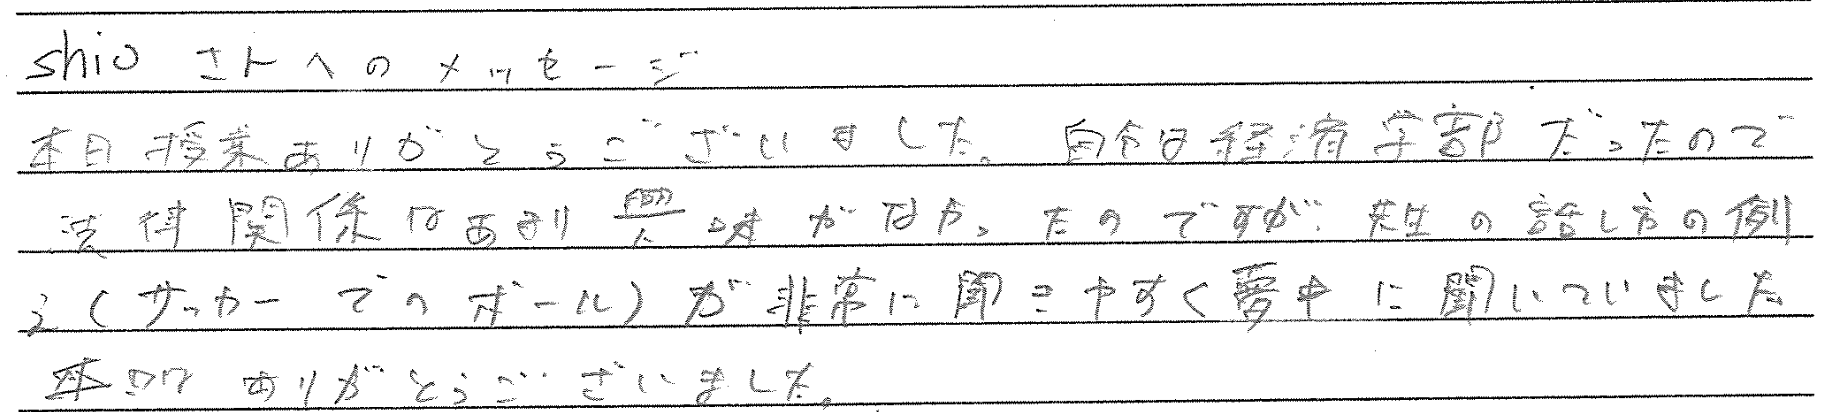 shioさんへのメッセージ
本日授業ありがとうございました。自分は経済学部だったので
法律関係はあまり興味がなかったのですが、先生の話し方の例
え(サッカーでのボール)が非常に聞きやすく夢中に聞いていました
ありがとうございました。